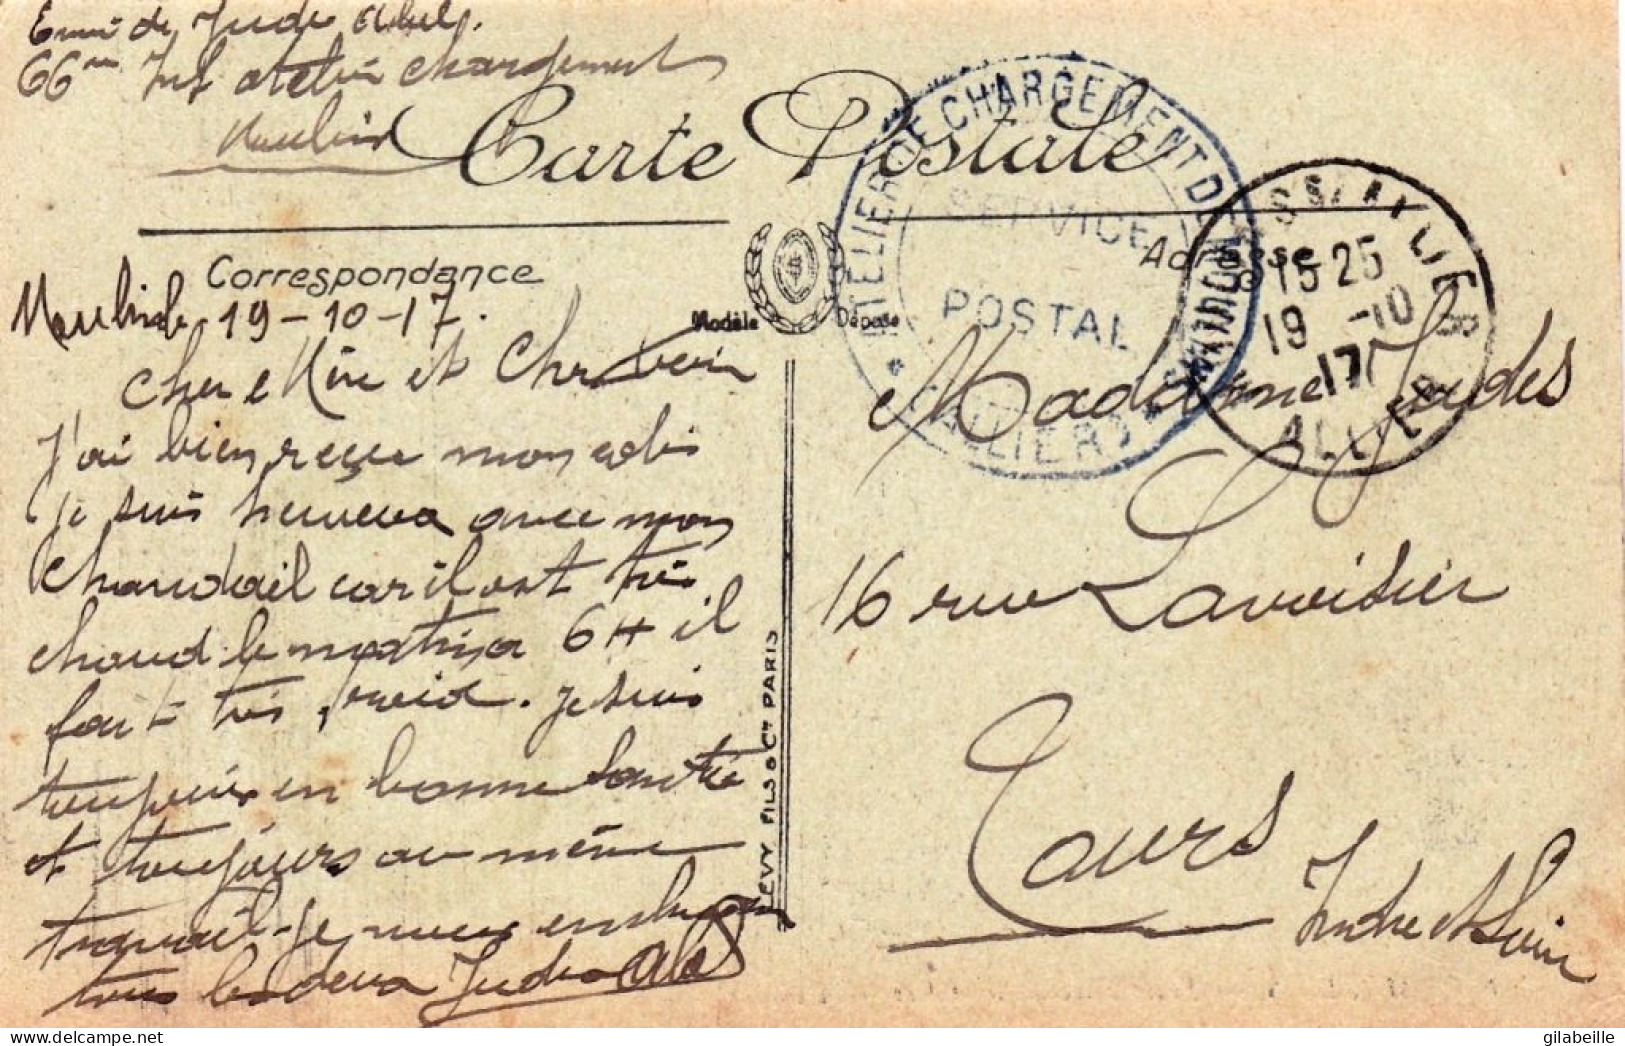 Envoi de Judes Abel.
66me Inf atelier chargement
Moulins
Carte Postale
ATELIER DE CHARGEMENT DE MOULINS
SERVICE
POSTAL
* (ALLIER) *
15 25
19 -10
17
ALLIER
Correspondance
Adresse
Modèle Déposé
Moulins le 19-10-17.
Chere Mère et Cher
J'ai bien reçue mon colis
je suis heureux avec mon
chandail car il est très
chaud le matin a 6H il
fait très froid. je suis
toujours en bonne santé
et toujours au même
travail. je vous embrasse
tous les deux Judes Abel
LEVY FILS & Cie PARIS
Madame Judes
16 rue Lavoisier
Tours
Indre et Loire
gilabeille